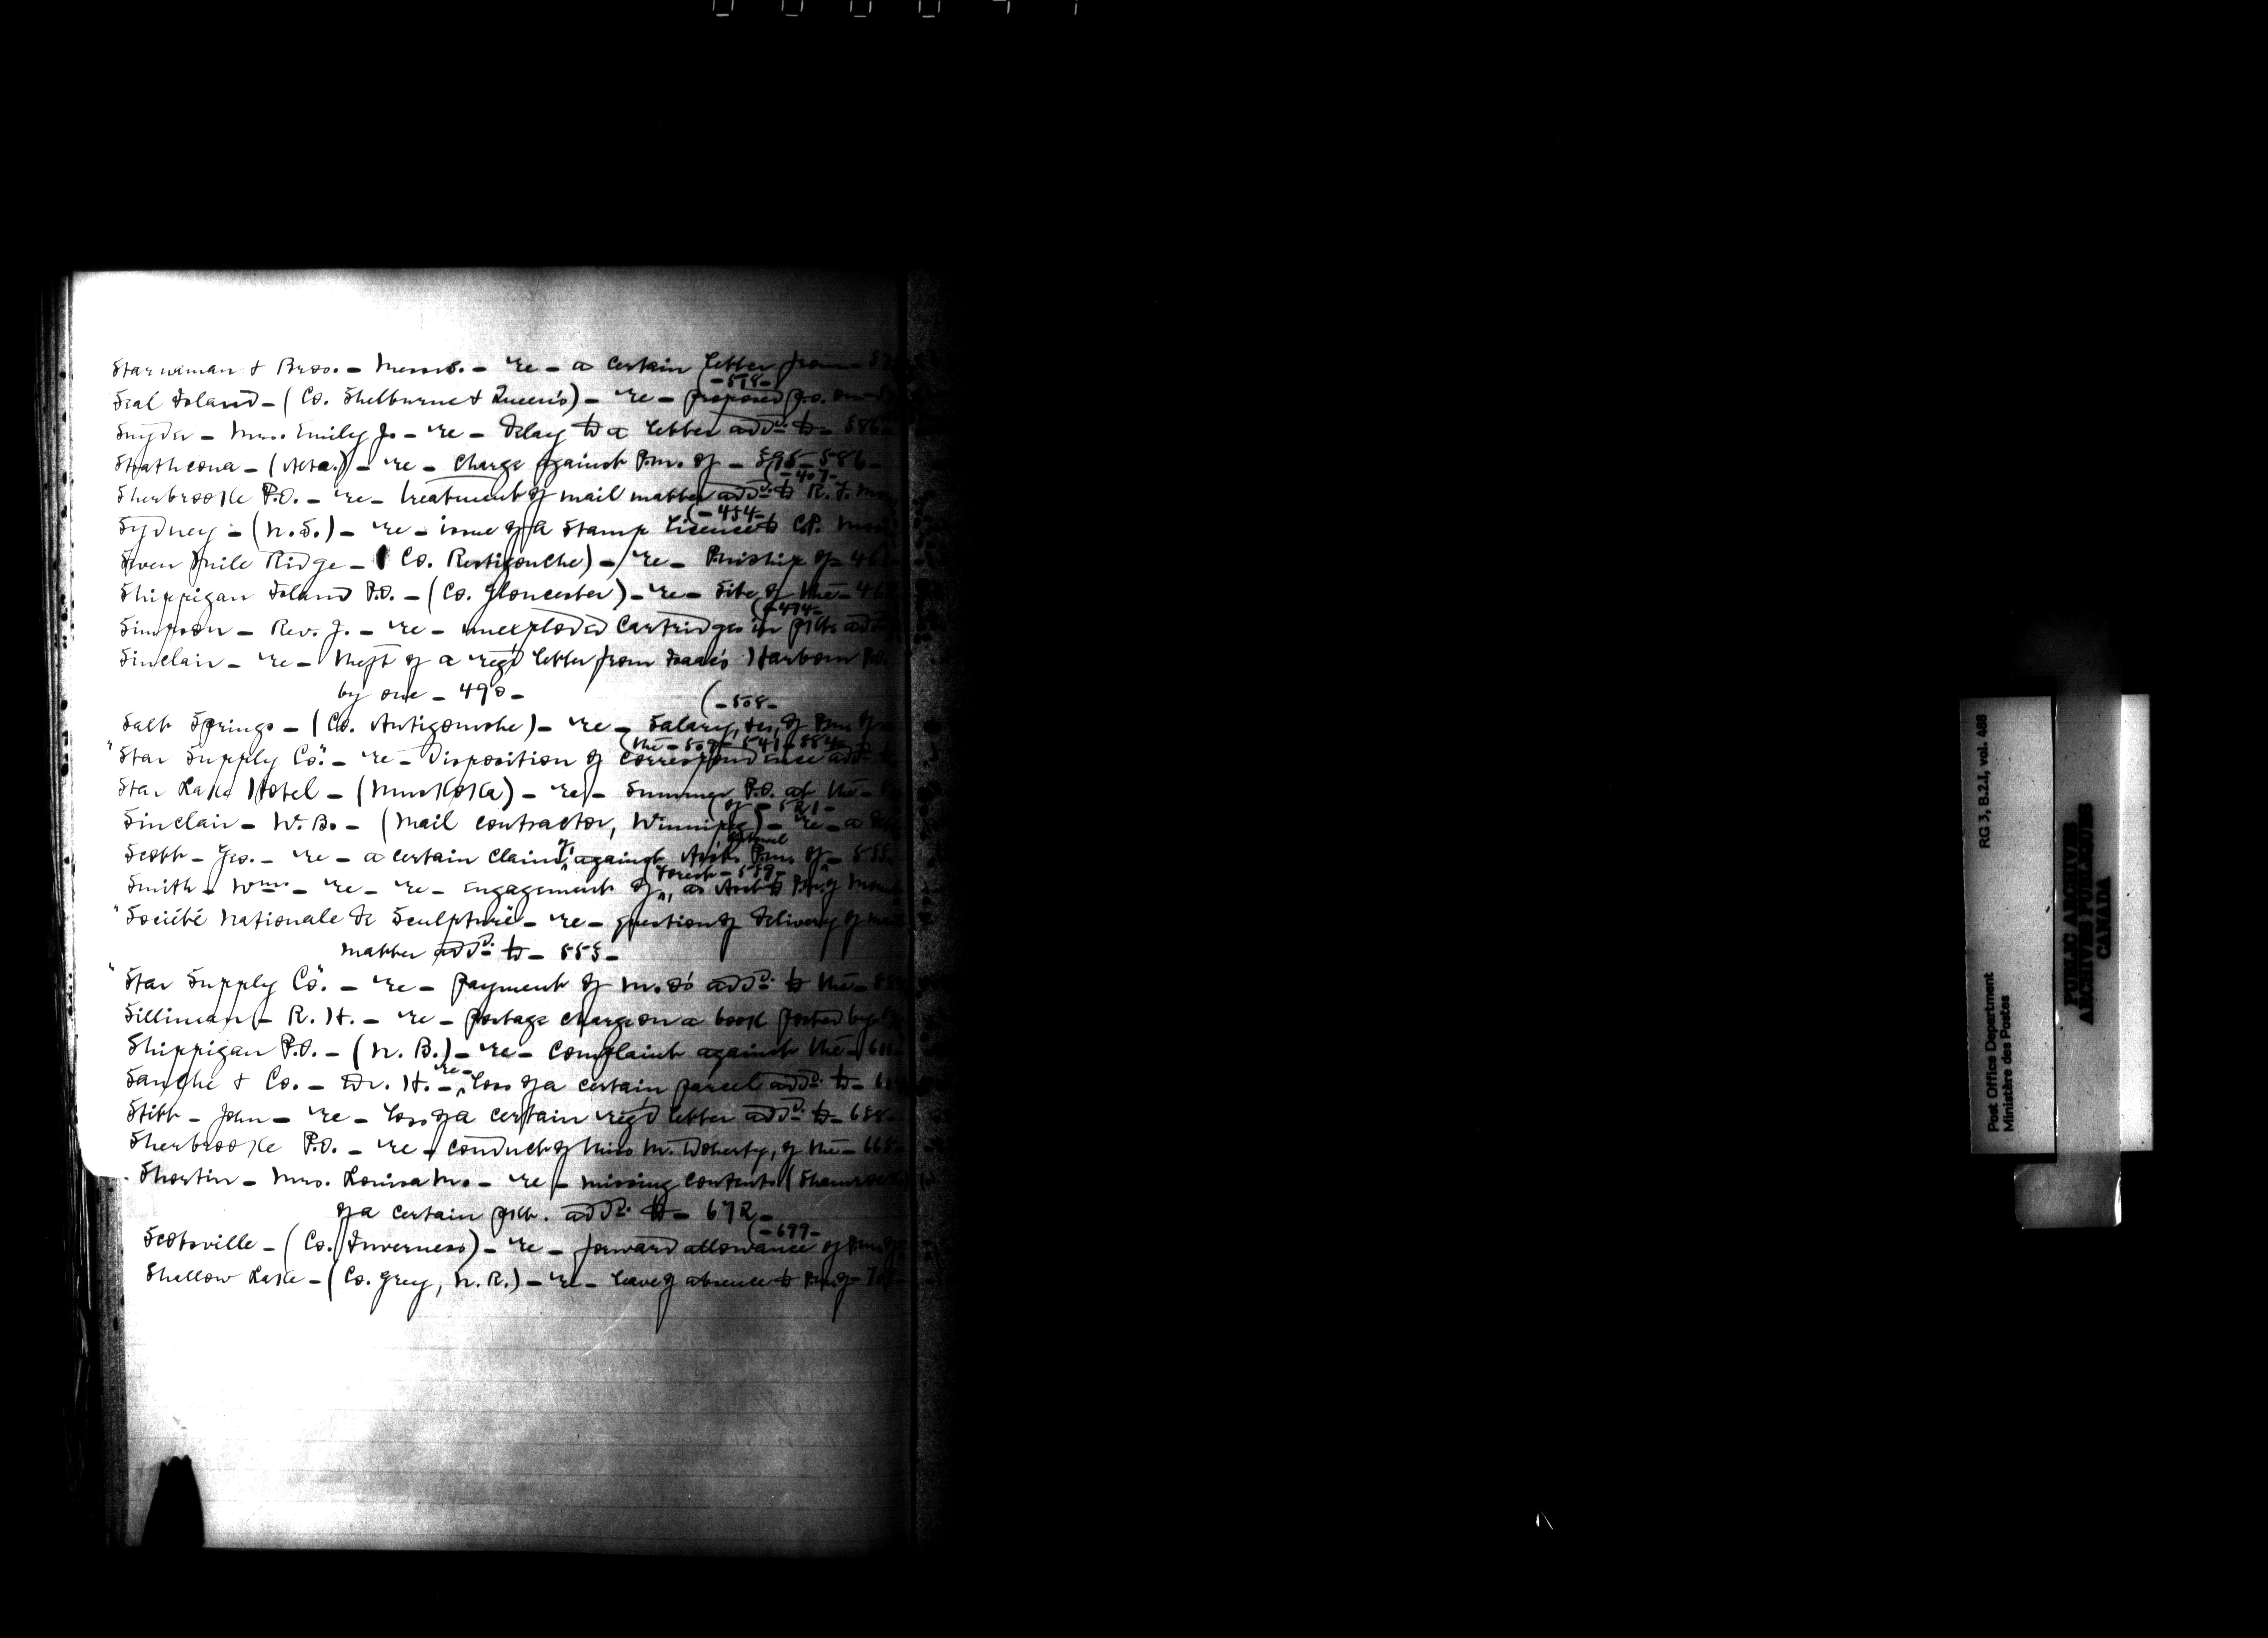 Starnaman & Bros. – Messrs. – re – a certain letter from –
(– 578 –
Seal Island – (Co. Shelburne & Queen's) – re – proposed p.o. on –
Snyder – Mrs. Emily J. – re – delay to a letter add'd. to – 586 –
Strathcona – (Alta.) – re – charge against P.m. of – 595 – 586 –
– 407 –
Sherbrooke P.O. – re – treatment of mail matter add'd. to R. J.
(– 454 –
Sydney – (N.S.) – re – issue of a stamp licence to C.P.
Seven Mile Ridge – (Co. Restigouche) – re – P.m.ship of –
Shippigan Island P.O. – (Co. Gloucester) – re – site of the –
(– 474 –
Simpson – Rev. J. – re – unexploded cartridges in pkt. add'd.
Sinclair – re – theft of a reg'd letter from Isaac's Harbour P.O.
by one – 490 –
(– 508 –
Salt Springs – (Co. Antigonishe) – re – salary, &c, of P.m. of –
(the – 509 – 541 – 584 –
"Star Supply Co." – re – disposition of correspondence add'd. to
Star Lake Hotel – (Muskoka) – re – summer P.O. at the –
(of – 521 –
Sinclair – W. B. – (mail contractor, Winnipeg) – re – a
Scott – Geo. – re – a certain claim of against Asst. P.m. of – 555 –
(Forest – 559 –
Smith – Wm. – re – re – engagement of, as Asst. to P.m. of Mount
"Société Nationale de Sculpture – re – question of delivery of mail
matter add'd. to – 555 –
"Star Supply Co." – re – payment of m.o's add'd. to the –
Silliman – R. H. – re – postage charge on a book posted by
Shippigan P.O. – (N. B.) – re – complaint against the –
Sanche & Co. – Dr. H. – re – loss of a certain parcel add'd. to –
Stitt – John – re – loss of a certain reg'd letter add'd. to – 658 –
Sherbrooke P.O. – re – conduct of Miss M. Doherty, of the – 668 –
Shortin – Mrs. Louisa M. – re – missing contents (Shamrocks)
of a certain pkt. add'd. to – 672 –
(– 699 –
Scotsville – (Co. Inverness) – re – forward allowance of P.m. of
Shallow Lake – (Co. Grey, N. R.) – re – leave of absence to P.m. of –
RG 3, B.2.1, vol. 488
Post Office Department
Ministère des Postes
PUBLIC ARCHIVES
ARCHIVES PUBLIQUES
CANADA